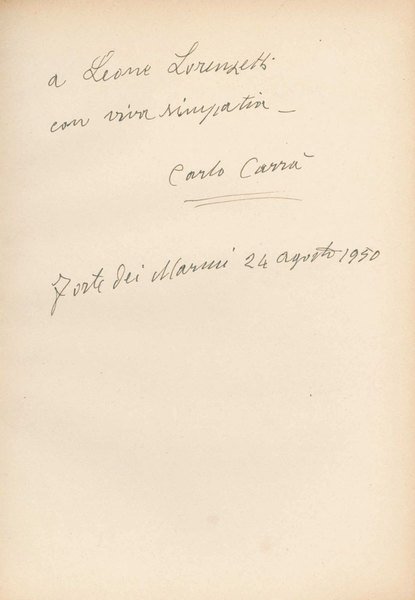 a Leone Lorenzetti
con viva simpatia _
Carlo Carrà
Forte dei Marmi 24 agosto 1950